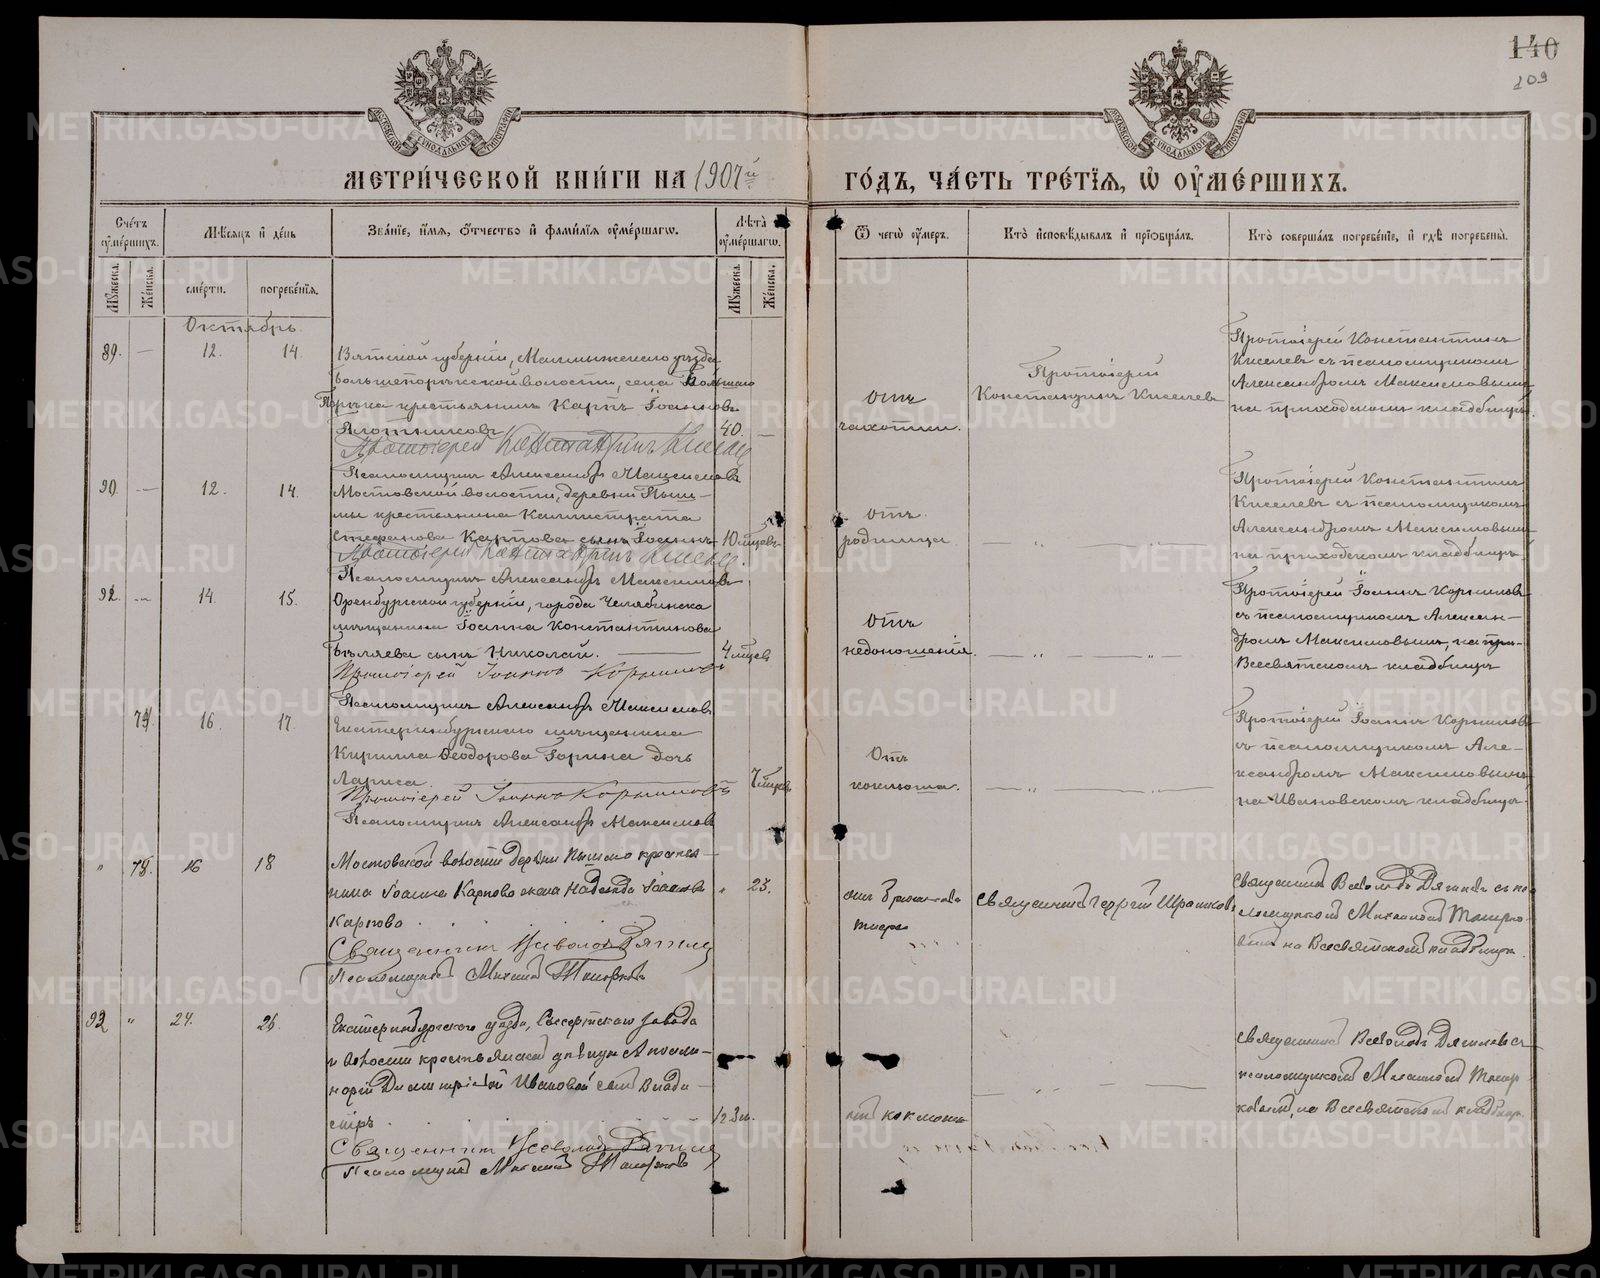 140
109
МЕТРИ́ЧЕСКОЙ КНИ́ГИ НА 1907й
ГО́ДЪ, ЧА́СТЬ ТРЕ́ТЇѦ, Ѡ ОУ҆МЕ́РШИХЪ.
Сче́тъ оу҆ме́ршихъ.
Мѣ́сяцъ и҆ де́нь
Зва́нїе, и҆́мя, о҆́тчество и҆ фами́лїя оу҆ме́ршагѡ.
Лѣта̀ оу҆ме́ршагѡ.
Ѿ чегѡ̀ оу҆́меръ.
Кто̀ и҆сповѣ́дывалъ и҆ прїѡбща́лъ.
Кто̀ соверша́лъ погребе́нїе, и҆ гдѣ̀ погребены̀.
Мꙋ́жеска.
Же́нска.
сме́рти.
погребе́нїя.
Мꙋ́жеска.
Же́нска.
Октябрь.
89. — 12. 14.
Вятской губернiи, Малмыжскаго уѣзда
Большепорѣкской волости, села Большаго
Порѣка крестьянинъ Карпъ Іоанновъ
Плотниковъ 40. —
Протоiерей Константинъ Киселевъ
Псаломщикъ Александръ Максимовъ
отъ
чахотки.
Протоiерей
Константинъ Киселевъ
Протоiерей Константинъ
Киселевъ съ псаломщикомъ
Александромъ Максимовымъ
на приходскомъ кладбищѣ.
90. — 12. 14.
Мостовской волости, деревни Пыш-
мы крестьянина Каллистрата
Стефанова Карпова сынъ Іоаннъ 10 мцевъ
Протоiерей Константинъ Киселевъ
Псаломщикъ Александръ Максимовъ
отъ
родимца.
Протоiерей Константинъ
Киселевъ съ псаломщикомъ
Александромъ Максимовымъ
на приходскомъ кладбищѣ
14. 15.
Оренбургской губернiи, города Челябинска
мѣщанина Іоанна Константинова
Бѣляева сынъ Николай. 4 мцев
Протоiерей Іоаннъ Корниловъ
Псаломщикъ Александръ Максимовъ
отъ
недоношенiя.
Протоiерей Іоаннъ Корниловъ
съ псаломщикомъ Алексан-
дромъ Максимовымъ, на
Всесвятскомъ кладбищѣ
74. 16. 17.
Екатеринбургскаго мѣщанина
Кирилла Ѳеодорова Горина дочь
Лариса. 7 мцевъ
Протоiерей Іоаннъ Корниловъ
Псаломщикъ Александръ Максимовъ
Отъ
коклюша.
Протоiерей Іоаннъ Корниловъ
съ псаломщикомъ Але-
ксандромъ Максимовымъ
на Ивановскомъ кладбищѣ.
" 75. 16 18
Мостовской волости деревни Пышмы кресть-
янина Іоанна Карпова жена Надежда
Карпова " 23.
Священникъ Всеволодъ
Псаломщикъ Михаилъ
отъ брюшнаго
тифа
Священникъ Георгiй
Священникъ Всеволодъ съ пса-
ломщикомъ Михаиломъ
на Всесвятскомъ кладбищѣ.
92 " 24. 26.
Екатеринбургскаго уѣзда, Сысертскаго завода
и волости крестьянской дѣвицы Аполли-
нарiи Димитрiевой Ивановой сынъ Влади-
мiръ 1 г 3 м.
Священникъ Всеволодъ
Псаломщикъ Михаилъ
отъ коклюша
Священникъ Всеволодъ съ
псаломщикомъ Михаиломъ
на Всесвятскомъ кладбищѣ.
METRIKI.GASO-URAL.RU